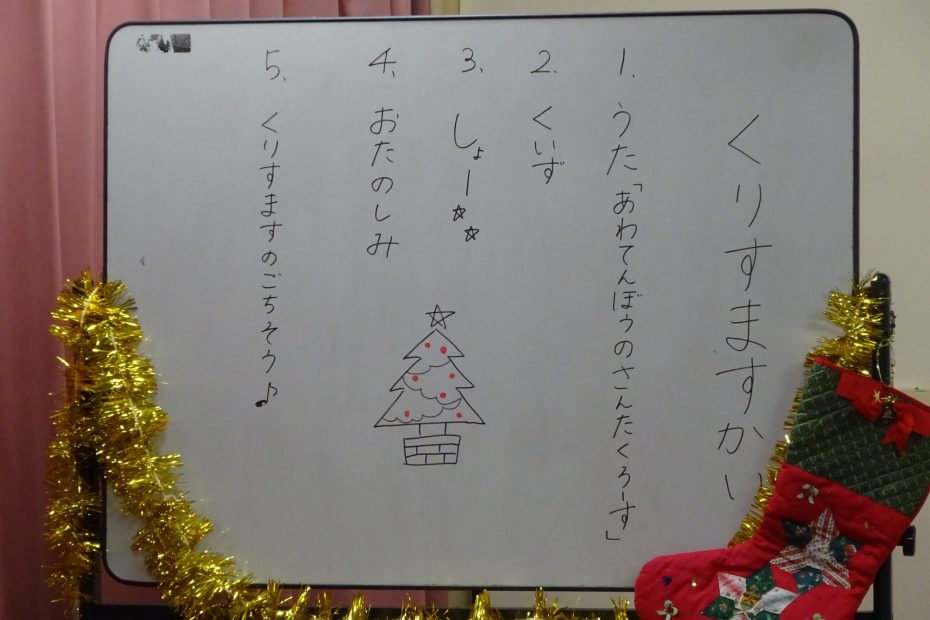 くりすますかい
1、うた「あわてんぼうのさんたくろーす」
2、くいず
3、しょー☆☆
4、おたのしみ
5、くりすますのごちそう♪